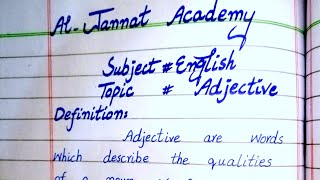 Al-Jannat Academy
Subject # English
Topic # Adjective
Definition:
Adjective are words
which describe the qualities
of a noun